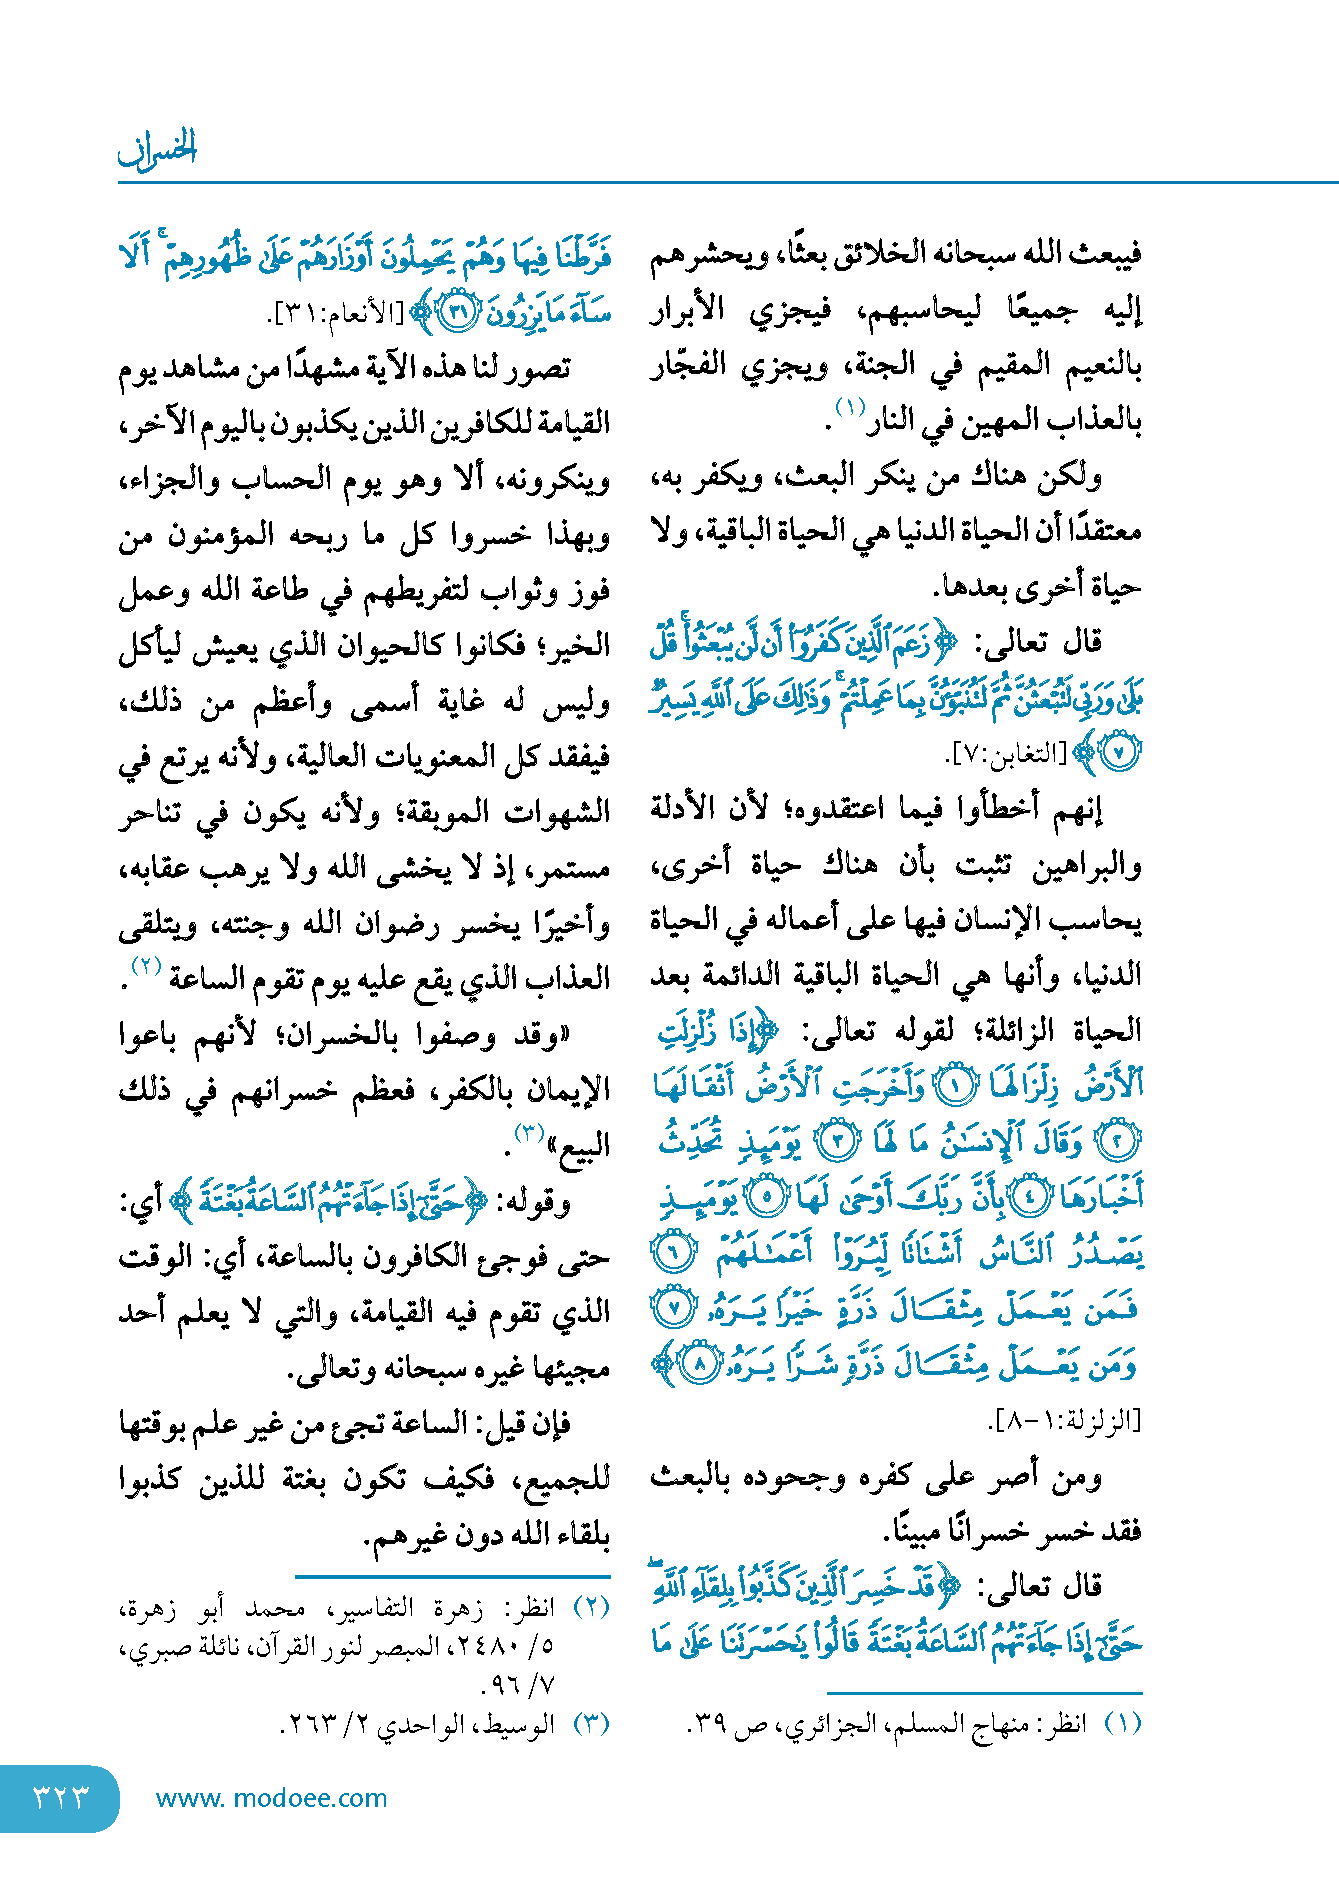 الخسران
فيبعث الله سبحانه الخلائق بعثًا، ويحشرهم
إليه جميعًا ليحاسبهم، فيجزي الأبرار
بالنعيم المقيم في الجنة، ويجزي الفجّار
بالعذاب المهين في النار(١).
ولكن هناك من ينكر البعث، ويكفر به،
معتقدًا أن الحياة الدنيا هي الحياة الباقية، ولا
حياة أخرى بعدها.
قال تعالى: ﴿زَعَمَ ٱلَّذِينَ كَفَرُوٓا۟ أَن لَّن يُبْعَثُوا۟ ۚ قُلْ
بَلَىٰ وَرَبِّى لَتُبْعَثُنَّ ثُمَّ لَتُنَبَّؤُنَّ بِمَا عَمِلْتُمْ ۚ وَذَٰلِكَ عَلَى ٱللَّهِ يَسِيرٌ
٧﴾ [التغابن:٧].
إنهم أخطأوا فيما اعتقدوه؛ لأن الأدلة
والبراهين تثبت بأن هناك حياة أخرى،
يحاسب الإنسان فيها على أعماله في الحياة
الدنيا، وأنها هي الحياة الباقية الدائمة بعد
الحياة الزائلة؛ لقوله تعالى: ﴿إِذَا زُلْزِلَتِ
ٱلْأَرْضُ زِلْزَالَهَا ١ وَأَخْرَجَتِ ٱلْأَرْضُ أَثْقَالَهَا
٢ وَقَالَ ٱلْإِنسَٰنُ مَا لَهَا ٣ يَوْمَئِذٍ تُحَدِّثُ
أَخْبَارَهَا ٤ بِأَنَّ رَبَّكَ أَوْحَىٰ لَهَا ٥ يَوْمَئِذٍ
يَصْدُرُ ٱلنَّاسُ أَشْتَاتًا لِّيُرَوْا۟ أَعْمَٰلَهُمْ ٦
فَمَن يَعْمَلْ مِثْقَالَ ذَرَّةٍ خَيْرًا يَرَهُۥ ٧
وَمَن يَعْمَلْ مِثْقَالَ ذَرَّةٍ شَرًّا يَرَهُۥ ٨﴾
[الزلزلة:١-٨].
ومن أصر على كفره وجحوده بالبعث
فقد خسر خسرانًا مبينًا.
قال تعالى: ﴿قَدْ خَسِرَ ٱلَّذِينَ كَذَّبُوا۟ بِلِقَآءِ ٱللَّهِ ۖ
حَتَّىٰٓ إِذَا جَآءَتْهُمُ ٱلسَّاعَةُ بَغْتَةً قَالُوا۟ يَٰحَسْرَتَنَا عَلَىٰ مَا
(١) انظر: منهاج المسلم، الجزائري، ص ٣٩.
فَرَّطْنَا فِيهَا وَهُمْ يَحْمِلُونَ أَوْزَارَهُمْ عَلَىٰ ظُهُورِهِمْ ۚ أَلَا
سَآءَ مَا يَزِرُونَ ٣١﴾ [الأنعام:٣١].
تصور لنا هذه الآية مشهدًا من مشاهد يوم
القيامة للكافرين الذين يكذبون باليوم الآخر،
وينكرونه، ألا وهو يوم الحساب والجزاء،
وبهذا خسروا كل ما ربحه المؤمنون من
فوز وثواب لتفريطهم في طاعة الله وعمل
الخير؛ فكانوا كالحيوان الذي يعيش ليأكل
وليس له غاية أسمى وأعظم من ذلك،
فيفقد كل المعنويات العالية، ولأنه يرتع في
الشهوات الموبقة؛ ولأنه يكون في تناحر
مستمر، إذ لا يخشى الله ولا يرهب عقابه،
وأخيرًا يخسر رضوان الله وجنته، ويتلقى
العذاب الذي يقع عليه يوم تقوم الساعة(٢).
«وقد وصفوا بالخسران؛ لأنهم باعوا
الإيمان بالكفر، فعظم خسرانهم في ذلك
البيع»(٣).
وقوله: ﴿حَتَّىٰٓ إِذَا جَآءَتْهُمُ ٱلسَّاعَةُ بَغْتَةً﴾ أي:
حتى فوجئ الكافرون بالساعة، أي: الوقت
الذي تقوم فيه القيامة، والتي لا يعلم أحد
مجيئها غيره سبحانه وتعالى.
فإن قيل: الساعة تجئ من غير علم بوقتها
للجميع، فكيف تكون بغتة للذين كذبوا
بلقاء الله دون غيرهم.
(٢) انظر: زهرة التفاسير، محمد أبو زهرة،
٥/ ٢٤٨٠، المبصر لنور القرآن، نائلة صبري،
٧/ ٩٦.
(٣) الوسيط، الواحدي ٢/ ٢٦٣.
www. modoee.com
٣٢٣